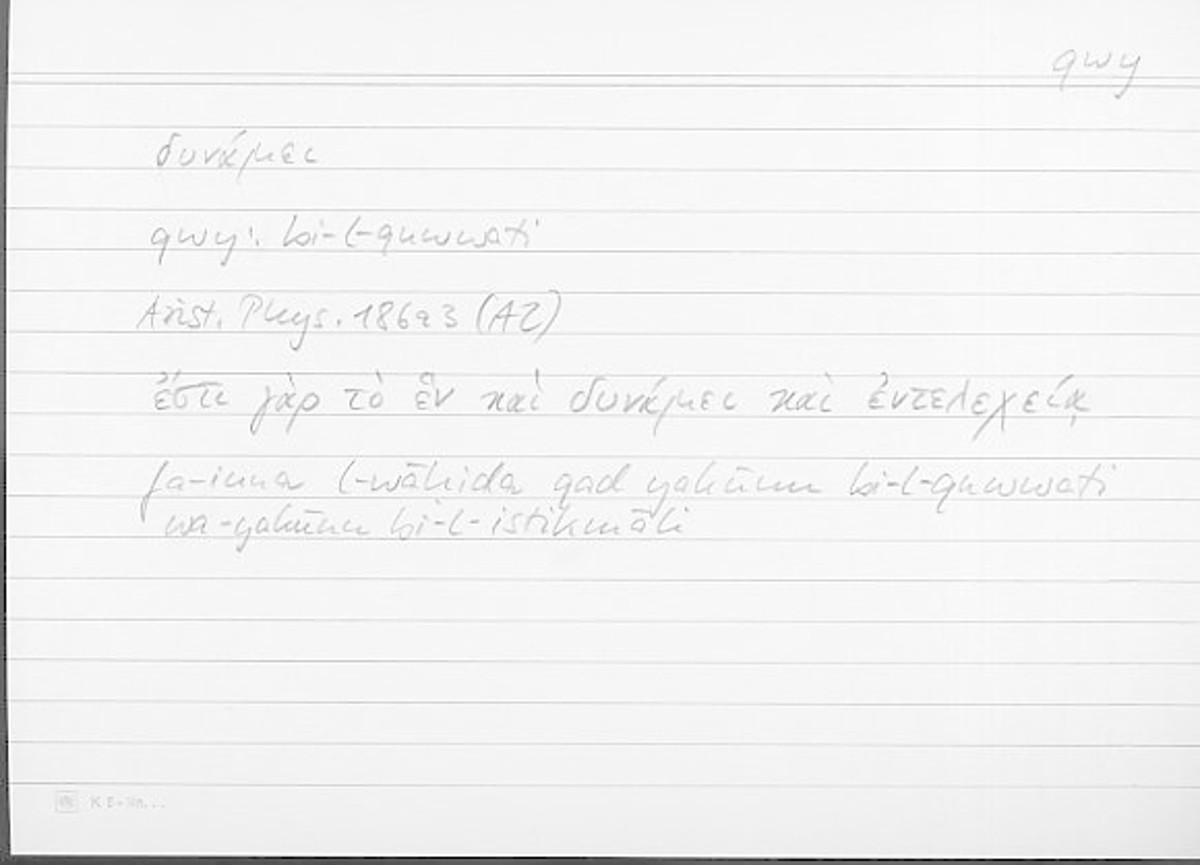 qwy
δυνάμει
qwy: bi-l-quwwati
Arist. Phys. 186a3 (A2)
ἔστι γὰρ τὸ ἓν καὶ δυνάμει καὶ ἐντελεχείᾳ
fa-inna l-wāḥida qad yakūnu bi-l-quwwati
wa-yakūnu bi-l-istikmāli